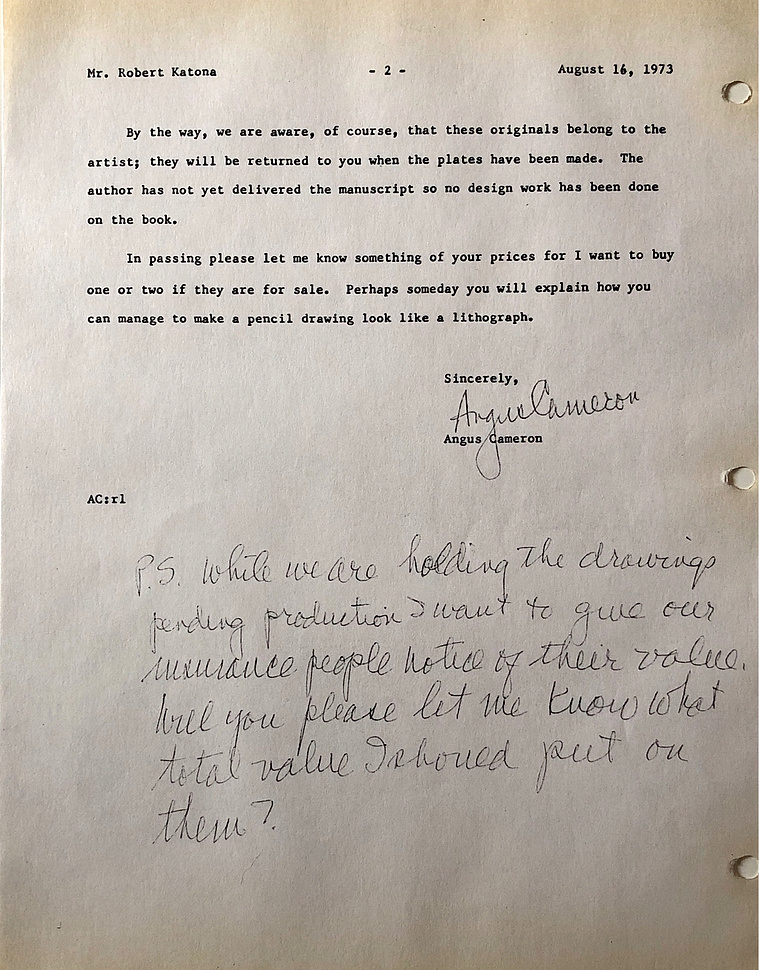 Mr. Robert Katona - 2 - August 16, 1973
By the way, we are aware, of course, that these originals belong to the
artist; they will be returned to you when the plates have been made. The
author has not yet delivered the manuscript so no design work has been done
on the book.
In passing please let me know something of your prices for I want to buy
one or two if they are for sale. Perhaps someday you will explain how you
can manage to make a pencil drawing look like a lithograph.
Sincerely,
Angus Cameron
Angus Cameron
AC:rl
P.S. While we are holding the drawings
pending production I want to give our
insurance people notice of their value.
Will you please let me know what
total value I should put on
them?